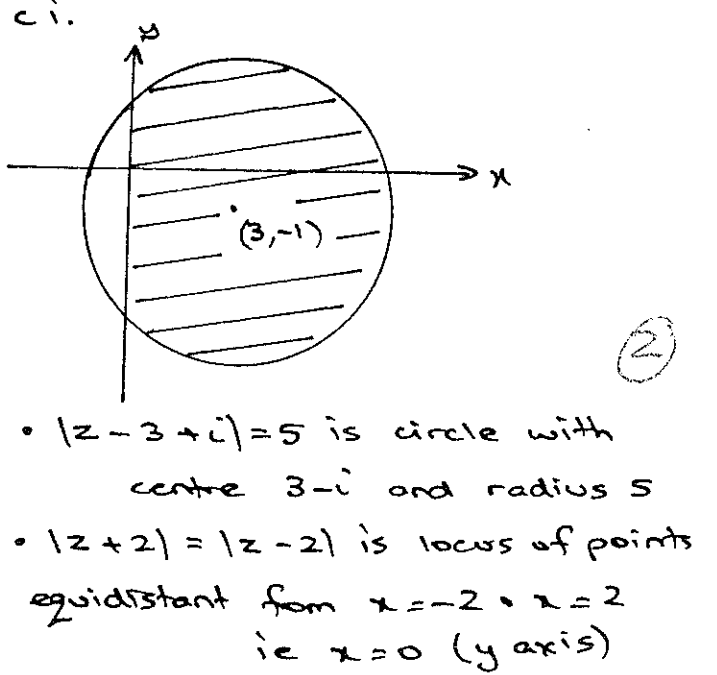 c i.
y
x
(3,-1)
2
• |z-3+i|=5 is circle with
centre 3-i and radius 5
• |z+2| = |z-2| is locus of points
equidistant from x=-2 • x=2
ie x=0 (y axis)